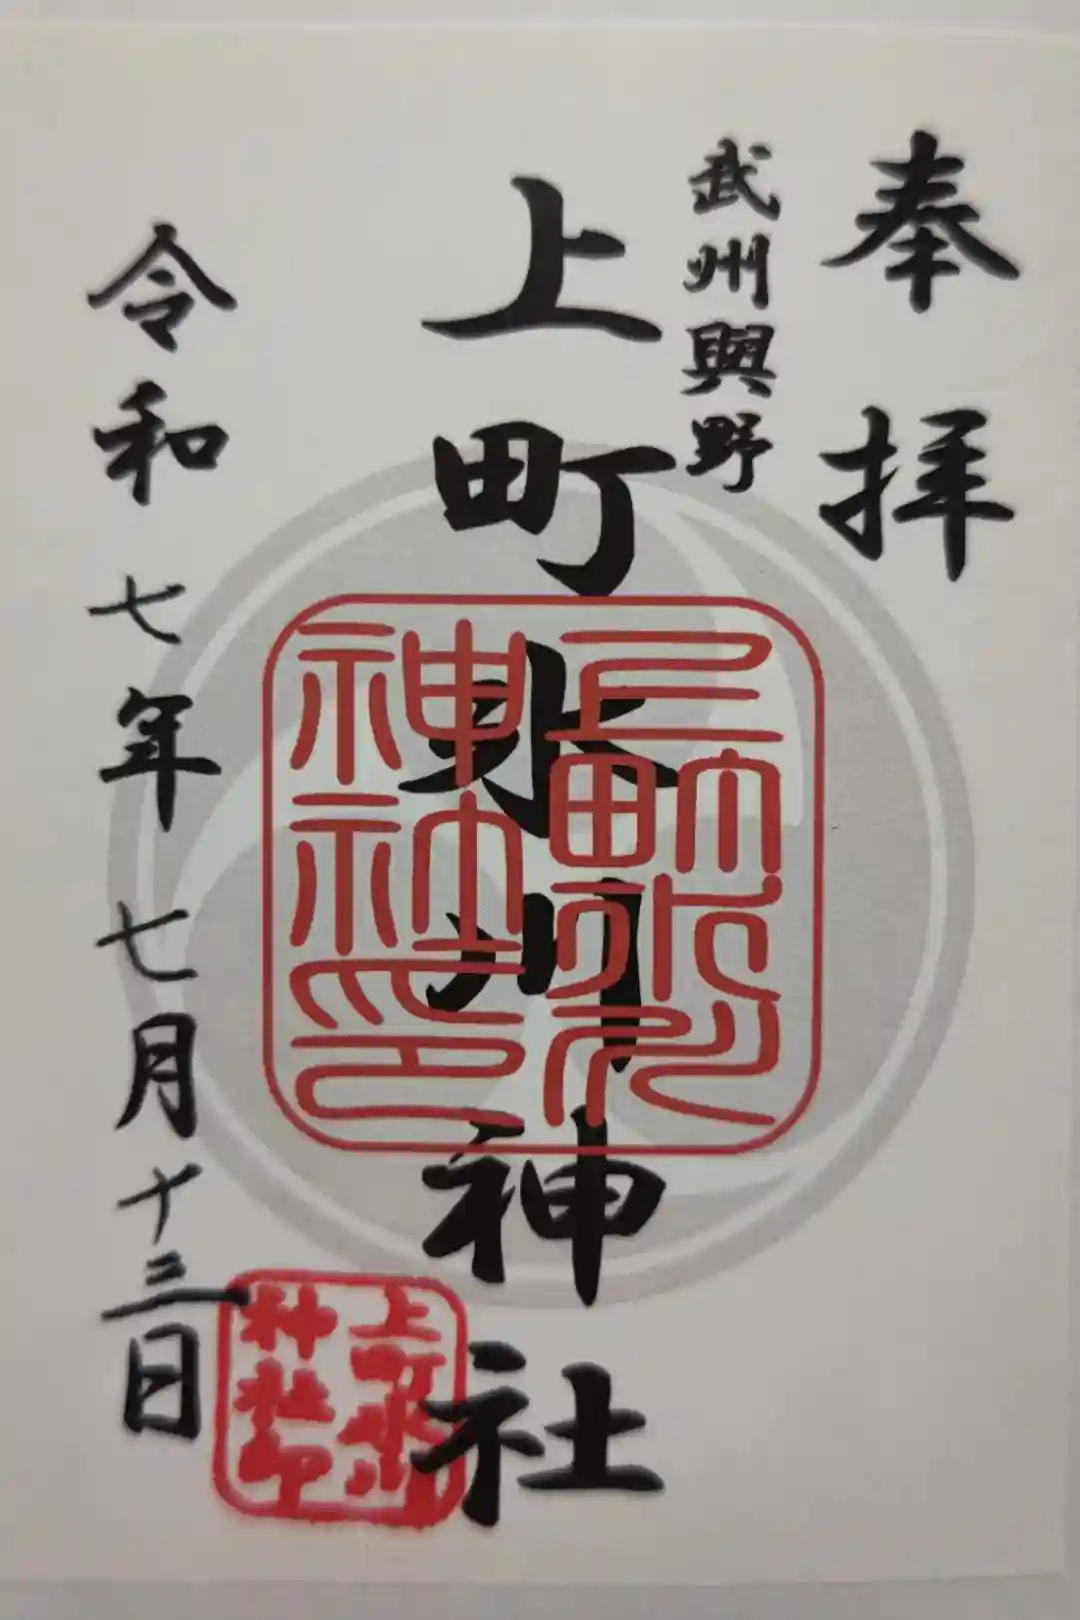 奉拝
武州與野
上町氷川神社
上町氷川神社印
令和七年七月十三日
上町氷川神社印